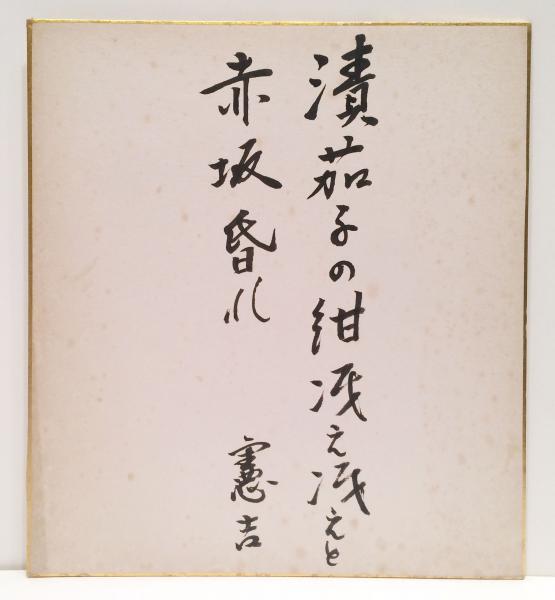 漬茄子の紺冴え冴えと
赤坂昏れ
憲吉